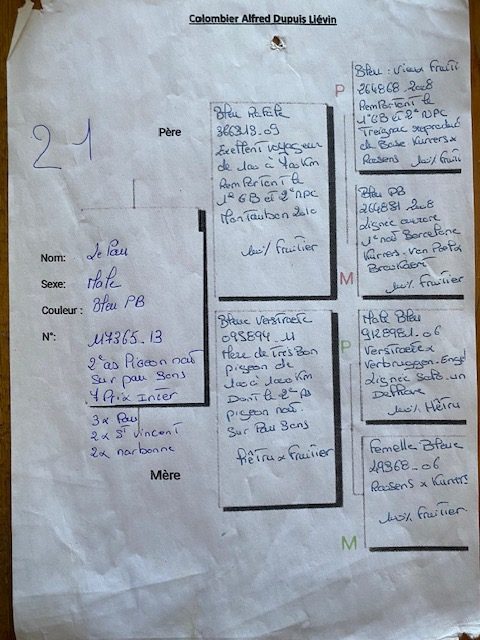 Colombier Alfred Dupuis Liévin
21
Père
Nom: Le Pau
Sexe: Male
Couleur : Bleu PB
N°: 117365.13
2e as Pigeon nat
sur pau 3ans
7 Prix Inter
3x Pau
2x St Vincent
2x narbonne
Mère
Bleu Rafale
366319.09
Exellent voyageur
de 100 à 700 Km
RemPortant le
1er GB et 2e NPC
Montauban 2010
100% Fruitier
Bleue Verstraete
095894.11
Mere de Tres Bon
pigeon de
100 à 1000 Km
Dont le 2e AS
pigeon nat.
sur Pau 3ans
hêtru x Fruitier
P
Bleu : Vieux Fruiti
264868.2008
RemPortant le
1er GB et 2e NPC
Treignac reproduc
de Base Kurvers x
Raosens 100% Fruiti
M
Bleu PB
264831 2008
Lignee aurore
1er nat Barcelone
Kurvers - Van
100% Fruitier
P
Male Bleu
9128981.06
Verstraete x
Verbruggen - Engel
Lignee Sans un
100% Hêtru
Femelle Bleue
49368.06
Raosens x Kurvers
100% Fruitier
M